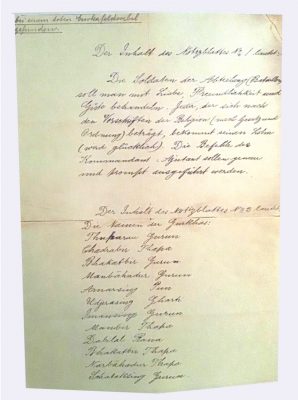 bei einem toten Gurkafeldwebel
gefunden.
Der Inhalt des Notizblattes No 1 lautet:
Die Soldaten der Abteilung (Bataillon)
soll man mit Liebe, Freundlichkeit und
Güte behandeln. Jeder, der sich nach
den Vorschriften der Religion (nach Gesetz und
Ordnung) beträgt, bekommt seinen Lohn
(wird glücklich). Die Befehle des
Kommandant Ajutant sollen genau
und prompt ausgeführt werden.
Der Inhalt des Notizblattes No 2 lautet
Die Namen der Gurkhas:
Gurun
Chadrabir Thapa
Bhakatbir Gurun
Manbahadur Gurun
Amarsing Pun
Udprasing Gharti
Jmansing Gurun
Manbir Thapa
Dalilal Rana
Bhakatbir Thapa
Narbahadur Thapa
Gurun